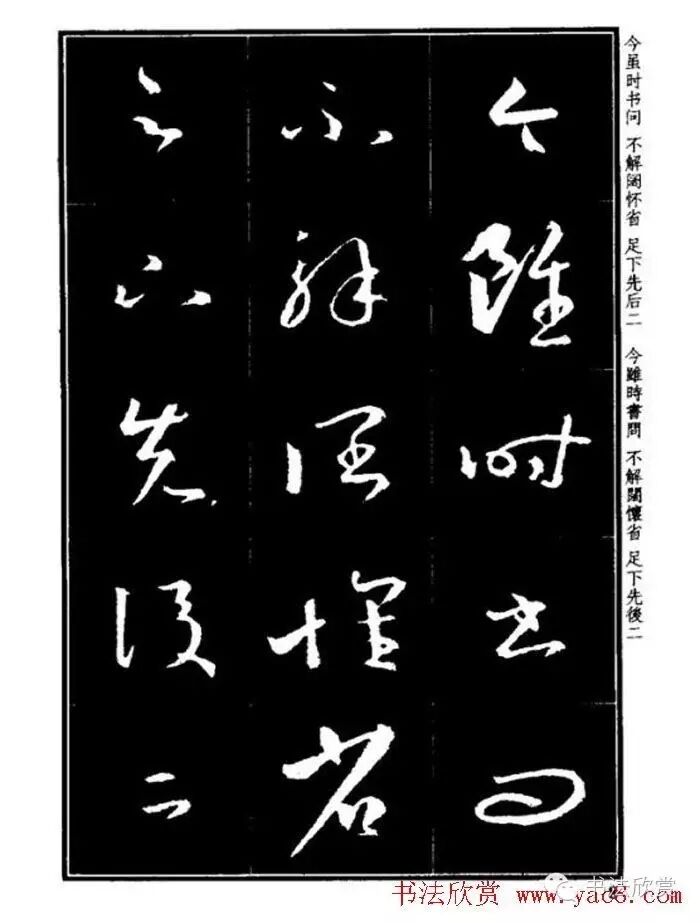 今雖時書問
不解闊懷省
足下先後二
今虽时书问 不解阔怀省 足下先后二
今雖時書問 不解闊懷省 足下先後二
书法欣赏 www.yac8.com
书法欣赏